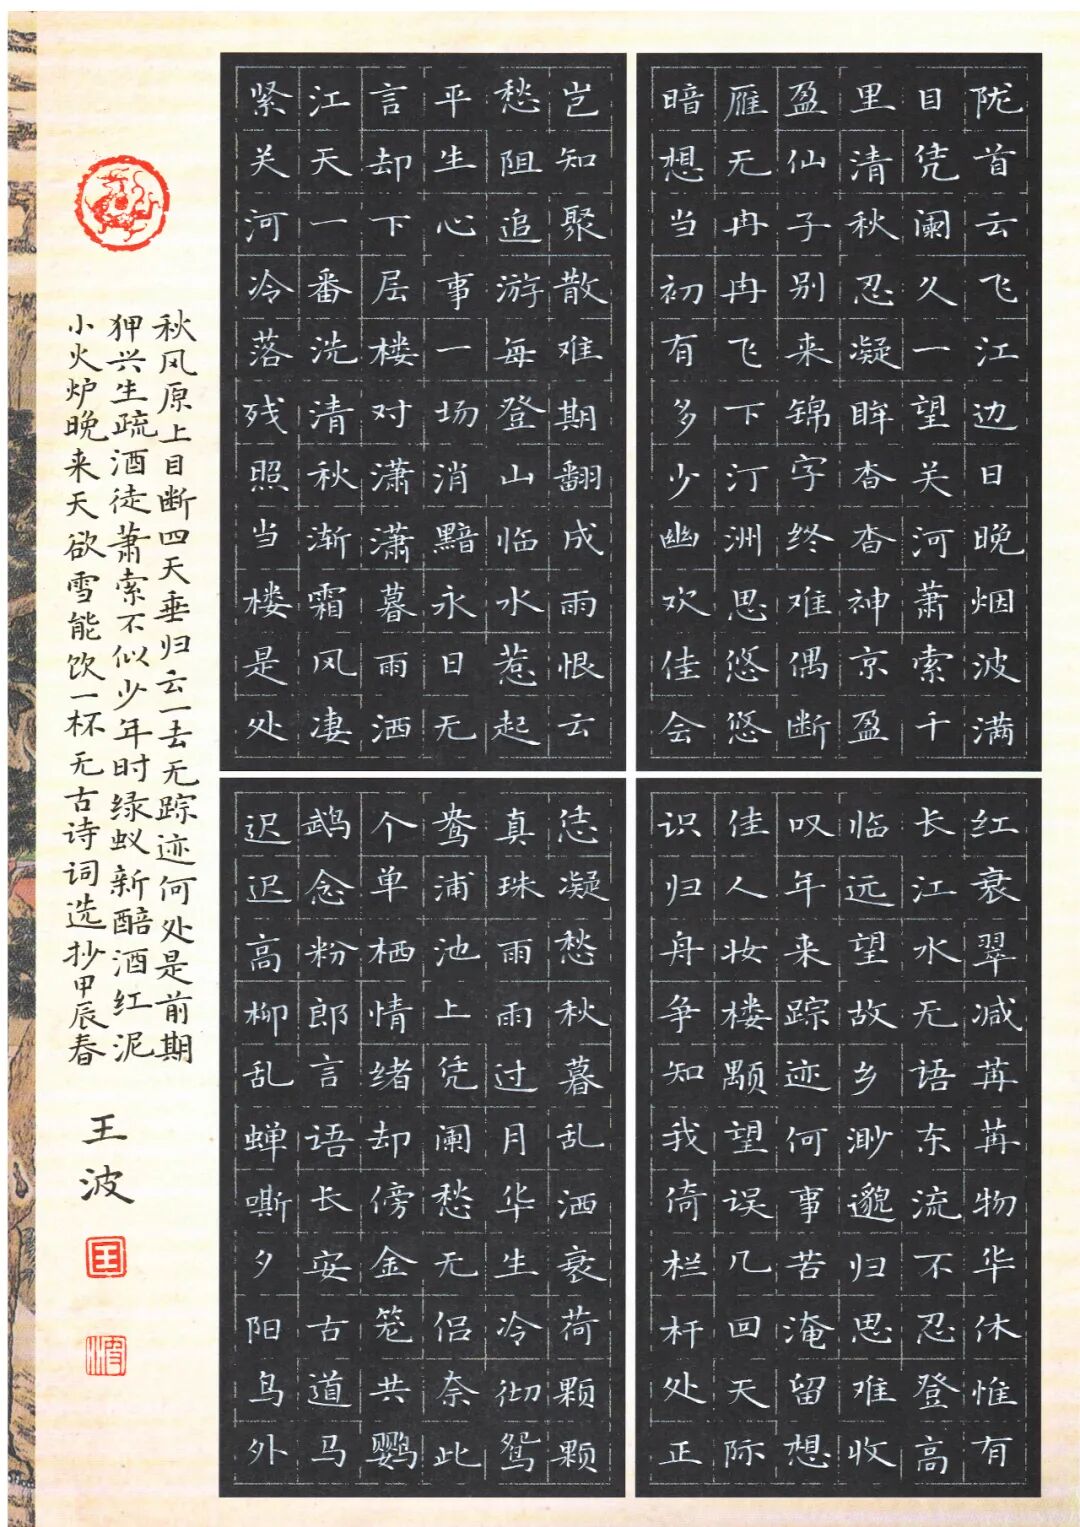 陇首云飞江边日晚烟波满
目凭阑久一望关河萧索千
里清秋忍凝眸杳杳神京盈
盈仙子别来锦字终难偶断
雁无冉冉飞下汀洲思悠悠
暗想当初有多少幽欢佳会
岂知聚散难期翻成雨恨云
愁阻追游每登山临水惹起
平生心事一场消黯永日无
言却下层楼对潇潇暮雨洒
江天一番洗清秋渐霜风凄
紧关河冷落残照当楼是处
红衰翠减苒苒物华休惟有
长江水无语东流不忍登高
临远望故乡渺邈归思难收
叹年来踪迹何事苦淹留想
佳人妆楼颙望误几回天际
识归舟争知我倚栏杆处正
恁凝愁秋暮乱洒衰荷颗颗
真珠雨雨过月华生冷彻鸳
鸯浦池上凭阑愁无侣奈此
个单栖情绪却傍金笼共鹦
鹉念粉郎言语长安古道马
迟迟高柳乱蝉嘶夕阳鸟外
秋风原上目断四天垂归云一去无踪迹何处是前期
狎兴生疏酒徒萧索不似少年时绿蚁新醅酒红泥
小火炉晚来天欲雪能饮一杯无古诗词选抄甲辰春
王波
王
波